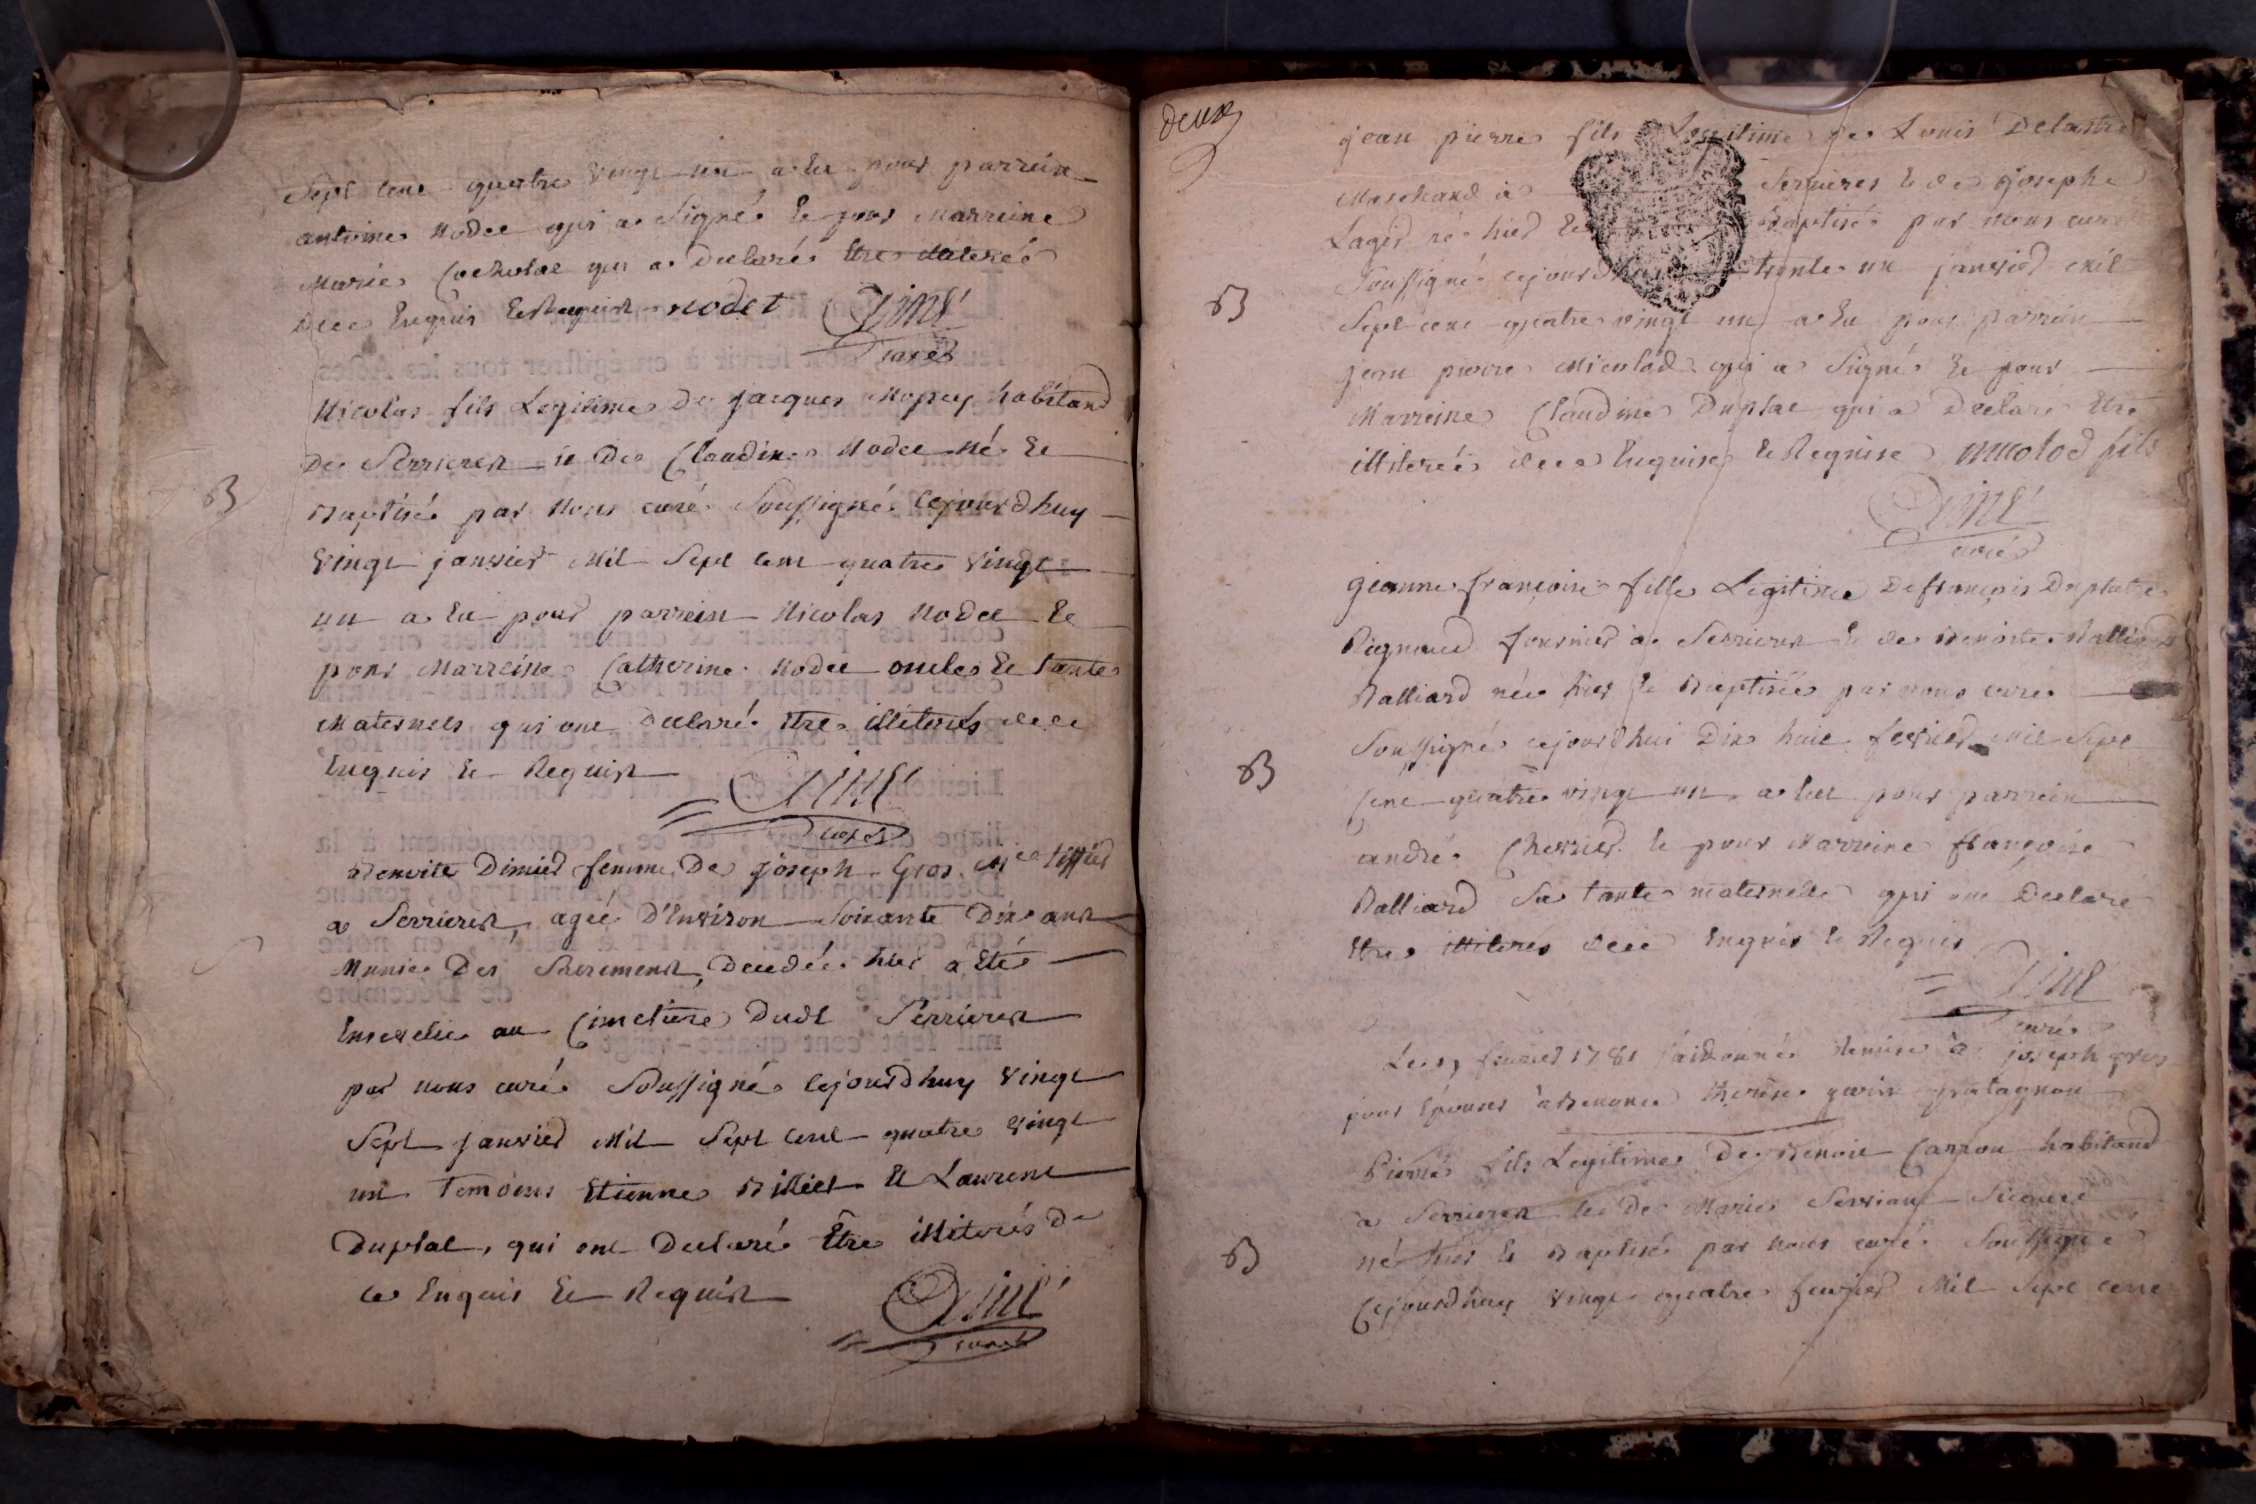 Sept cent quatre vingt un a eu pour parrein
antoine Nodet qui a signé et pour Marreine
Marie qui a declaré être illiterée
de ce Enquis et Requis nodet
curé
Nicolas fils Legitime de jacques habitand
De Serrieres et De Claudine Nodet né et
B
Baptisé par Nous curé Soussigné cejourdhuy
vingt janvier Mil Sept cent quatre vingt
un a eu pour parrein Nicolas Nodet et
pour Marreine Catherine Nodet oncle et tante
Maternels qui ont declaré être illiterés de ce
Enquis et Requis
curé
Benoite Dimier femme De joseph Gros
a Serrieres, ageé D'Environ Soixante Dix ans
Munie Des Sacrements, Decedée hier a Eté
Ensevelie au Cimetiere Dudt Serrieres
par nous curé Soussigné cejourdhuy vingt
Sept janvier Mil Sept cent quatre vingt
un Temoins Etienne Billiet et Laurent
Duplat, qui ont Declaré Être illiterés de
ce Enquis et Requis
curé
deux
jean pierre fils Legitime de Louis Delastre
Marchand à Serrieres et de josephe
Lager né hier et Baptisé par nous curé
Soussigné cejourdhuy trente un janvier mil
B
Sept cent quatre vingt un a eu pour parrein
jean pierre Micolod qui a signé et pour
Marreine Claudine Duplat qui a Declaré être
illiterée de ce Enquise et Requise micolod fils
curé
jeanne françoise fille Legitime de françois
a Serrieres et de Benoite Balliard
Balliard née hier et Baptisée par nous curé
Soussigné cejourdhui Dix huit fevrier mil Sept
B
Cent quatre vingt un a eu pour parrein
andré Chevrier et pour Marreine françoise
Balliard sa tante maternelle qui ont Declaré
être illiterés de ce Enquis et Requis
curé
fevrier 1781 j'ai donné remise à joseph gros
pour Epouser
Pierre fils Legitime De Benoit Carron habitand
a Serrieres et De Marie
B
né hier et Baptisé par Nous curé Soussigné
Cejourdhuy vingt quatre fevrier Mil Sept cent